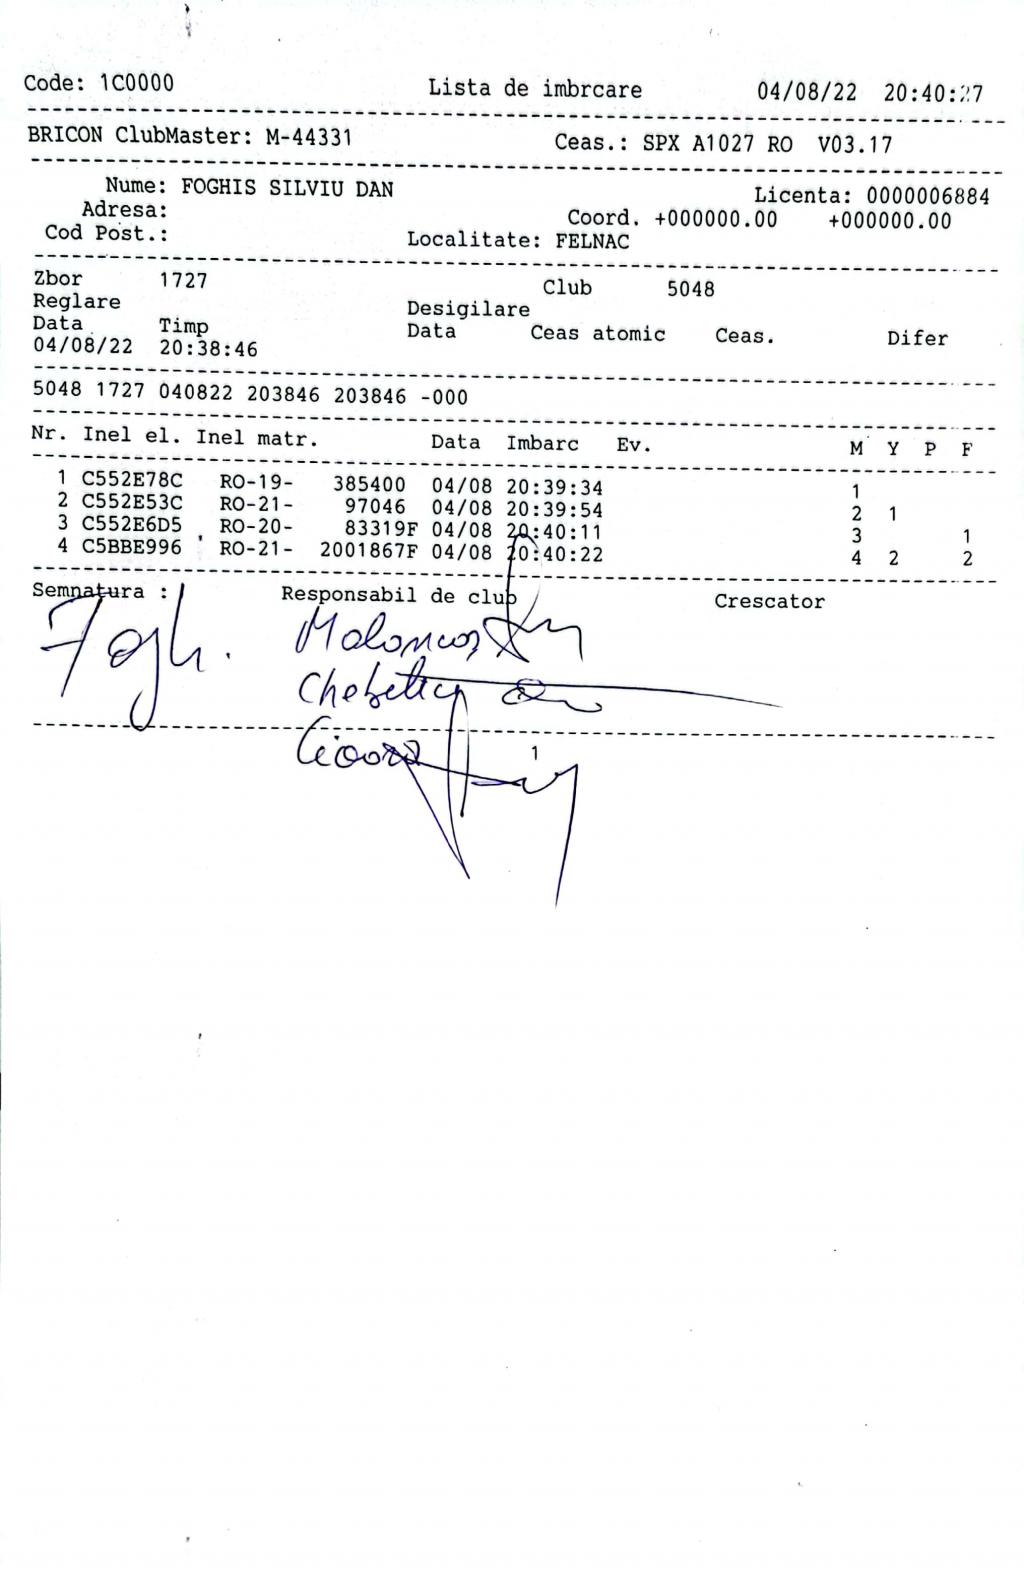 Code: 1C0000 Lista de imbrcare 04/08/22 20:40:27
BRICON ClubMaster: M-44331 Ceas.: SPX A1027 RO V03.17
Nume: FOGHIS SILVIU DAN Licenta: 0000006884
Adresa: Coord. +000000.00 +000000.00
Cod Post.: Localitate: FELNAC
Zbor 1727 Club 5048
Reglare Desigilare
Data Timp Data Ceas atomic Ceas. Difer
04/08/22 20:38:46
5048 1727 040822 203846 203846 -000
Nr. Inel el. Inel matr. Data Imbarc Ev. M Y P F
1 C552E78C RO-19- 385400 04/08 20:39:34 1
2 C552E53C RO-21- 97046 04/08 20:39:54 2 1
3 C552E6D5 RO-20- 83319F 04/08 20:40:11 3 1
4 C5BBE996 RO-21- 2001867F 04/08 20:40:22 4 2 2
Semnatura : Responsabil de club Crescator
1